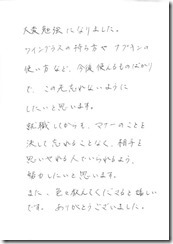 大変勉強になりました。
ワイングラスの持ち方やナプキンの
使い方など、今後使えるものばかり
で、この先忘れないように
したいと思います。
就職してからも、マナーのことを
決して忘れることなく、相手を
思いやれる人でいられるよう、
努力したいと思います。
また、色々教えてくださると嬉しい
です。ありがとうございました。